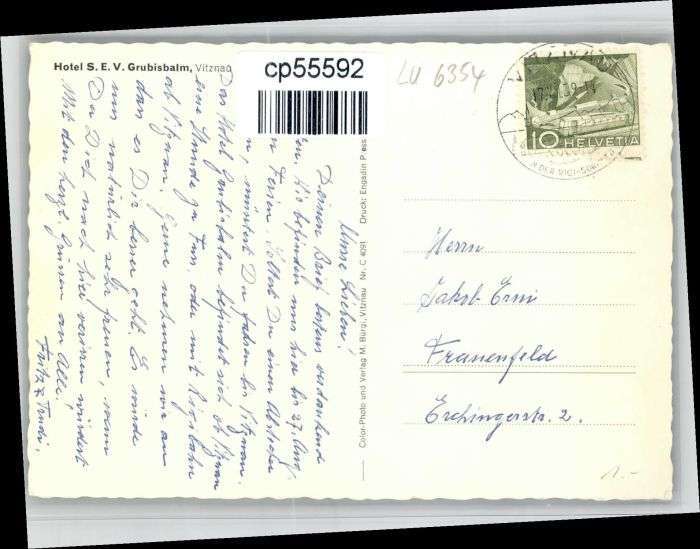 Hotel S. E. V. Grubisbalm, Vitznau
cp55592
LU 6354
10 HELVETIA
Unsre Lieben!
Deinen Brief bestens verdankend
befinden uns hier bis 27. Aug.
Ferien. Solltet Du einen Abstecher
n, müsstest Du fahren bis Vitznau.
Das Hotel Grubisbalm befindet sich ob Vitznau
eine Stunde zu Fuss oder mit Rigibahn
ab Vitznau. Gerne nehmen wir an
dass es Dir besser geht. Es würde
uns natürlich sehr freuen, wenn
Du Dich nach hier verirren würdest
Mit den herzl. Grüssen an Alle,
Fritz & Trudi.
Color-Photo und Verlag M. Bürgi, Vitznau Nr. C 4091 Druck: Engadin Press
Herrn
Jakob Erni
Frauenfeld
Erchingerstr. 2.
1.-